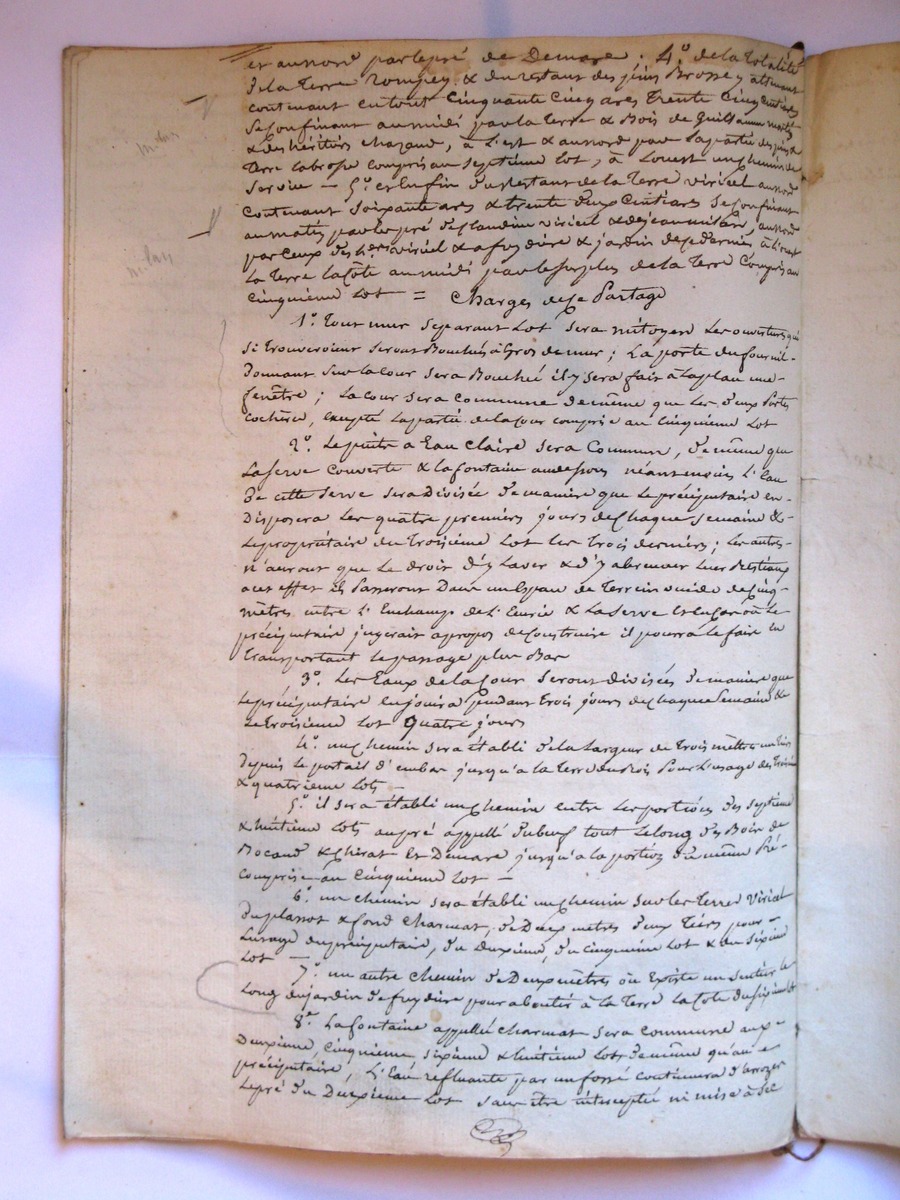 et au nord par le pré de Demare. 4.° de la totalité
de la Terre Rompey & du restant des pins Brosse y attenant
contenant en tout cinquante cinq ares trente cinq centiares
se confinant au midi par la terre & Bois de Guillaume
& des héritiers chazaud, à l'est & au nord par la partie des pins &
Terre labrosse compris au septième lot, à l'ouest un chemin de
service — 5.° et Enfin du restant de la Terre viricel au nord
contenant soixante ares & trente deux centiares se confinant
au matin par le pré de Claudin viricel & de jean milan, au nord
par ceux des h.ers viricel & a fuydière & jardin de ce dernier à l'ouest
la Terre la Côte au midi par le surplus de la Terre Compris au
cinquième Lot = Charges de ce Partage
1.° Tout mur separant Lot sera mitoyen les ouvertures qui
si trouveroient seront Bouchés à Gros de mur; La porte du fournil
Donnant sur la cour sera Bouchée il y sera fait à la place une
fenêtre; la cour sera commune de même que les deux Portes
cochères, excepté la partie de la cour comprise au cinquième Lot
2.° Le puits à Eau claire sera Commun, de même que
la serve couverte & la fontaine au dessous néantmoins l'Eau
de cette serve sera divisée de manière que le précipuitaire en
Disposera les quatre premiers jours de chaque semaine &
le propriétaire du troisième Lot les trois derniers; les autres
n'auront que le droit d'y laver & d'y abreuver leurs Bestiaux
a cet effet ils Passeront Dans un Espace de Terrein vuide de cinq
mètres entre l'Enchamp de l'Ecurie & La Serve Et en cas où le
précipuitaire jugerait apropos de Construire il pourra le faire en
transportant le passage plus Bas
3.° Les Eaux de la Cour seront divisées de manière que
le précipuitaire en jouira pendant trois jours de chaque Semaine &
le troisième Lot Quatre jours
4.° un chemin sera établi de la Largeur de Trois mètres un tiers
depuis le portail d'embas jusqu'a la Terre du Bois Pour l'usage des Troisième
& quatrième Lots —
5.° il sera établi un chemin entre les portions des septième
& huitième Lots au pré appellé dubœuf tout le long des Bois de
Bocand & Chirat Et Demare jusqu'a la portion du même Pré
comprise au cinquième Lot —
6.° un chemin sera établi un chemin sur les Terres viricel
Duplassot & fond charmat, de Deux mètres deux tiers pour
l'usage du précipuitaire, du deuxième, du cinquième Lot & du sixième
Lot — 7.° un autre chemin de Deux mètres où Existe un sentier le
Long du jardin de fuydière pour aboutir à la Terre la Côte du sixième lot
8.° La fontaine appellée charmat sera commune aux
Deuxième, cinquième sixième & huitième Lots de même qu'au
précipuitaire, l'Eau refluante par un fossé continuera d'arroser
le pré du Deuxième Lot sans être interceptée ni mise à sec
milan
milan